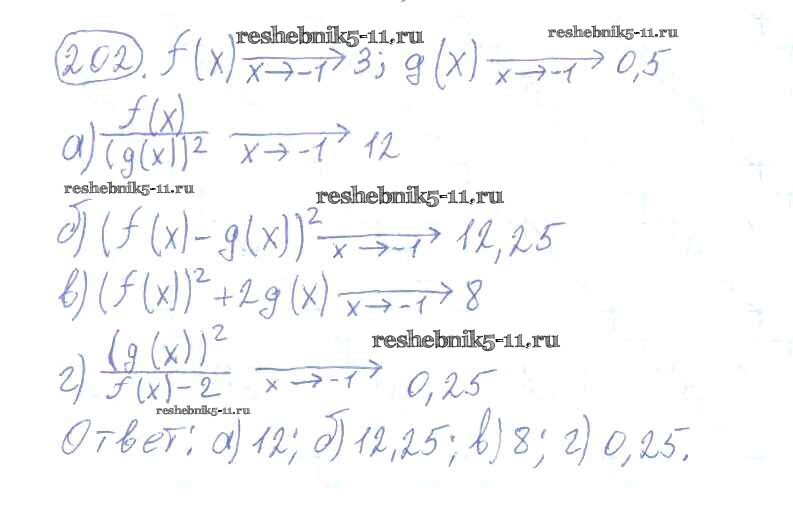 reshebnik5-11.ru reshebnik5-11.ru
202. f(x) →x→-1 3; g(x) →x→-1 0,5
а) f(x)/(g(x))² →x→-1 12
reshebnik5-11.ru reshebnik5-11.ru
б) (f(x) - g(x))² →x→-1 12,25
в) (f(x))² + 2g(x) →x→-1 8
reshebnik5-11.ru
г) (g(x))²/f(x) - 2 →x→-1 0,25
reshebnik5-11.ru
Ответ: а) 12; б) 12,25; в) 8; г) 0,25.